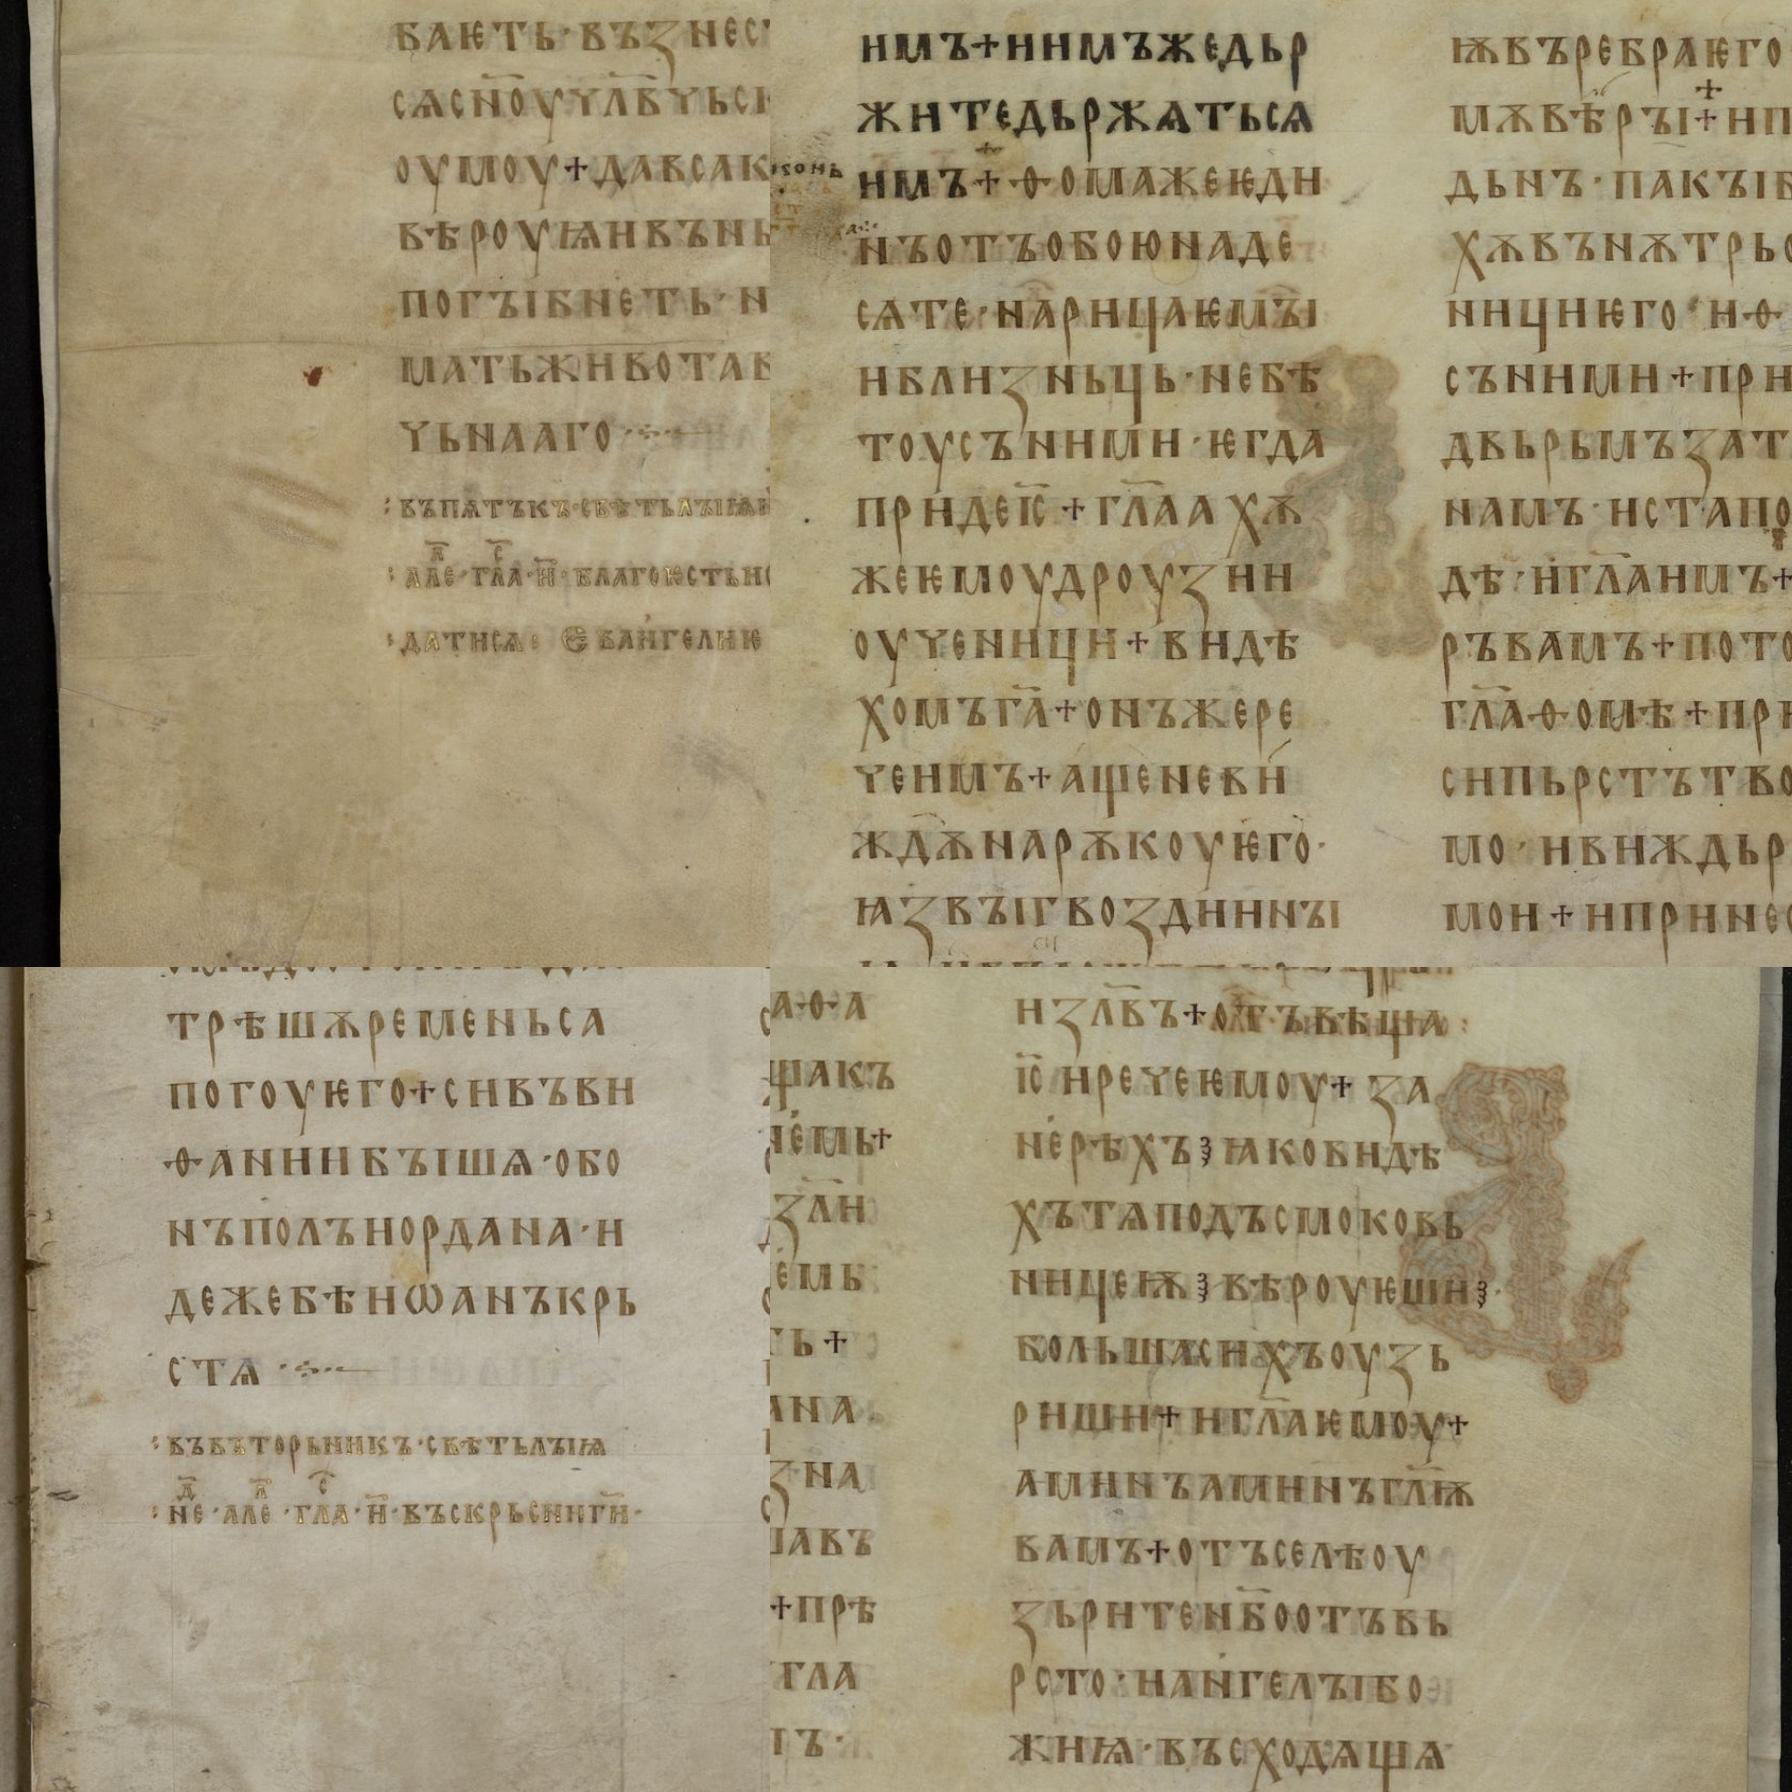 баѥть · възнес
сѧ сн҃оу чл҃вчьск
оумоу + да вьсак
вѣроуѩи въ нь
погꙑбнеть · н
мать жнвота в
чьнааго ·:·—
: въ пѧтъкъ · свѣтьлꙑѩ н
: але · гла · н҃ · благо ѥсть н
: датнсѧ : Єванг҄елнѥ
нмъ + н нмъже дьр
жнте дьржѧтьсѧ
нмъ + ѳома же ѥдн
нъ отъ обою на де
сѧте · нарнцаѥмꙑ
н блнзньць · не бѣ
тоу съ ннмн · ѥгда
прнде іс҃ + гл҃аахѫ
же ѥмоу дроузнн
оученнцн + вндѣ
хомъ га҃ + онъ же ре
че нмъ + аще не вн
ждѫ на рѫкоу ѥго ·
ꙗзвꙑ гвозднннꙑ
ѭ въ ребра ѥго
мѫ вѣрꙑ + н п
дьнъ · пакꙑ б
хѫ вънѫтрьо
ннцн ѥго · н ѳ
съ ннмн + прн
двьрьмъ зат
намъ · н ста по
дѣ · н гл҃а нмъ +
ръ вамъ + пото
гл҃а ѳомѣ + прн
сн пьрстъ тво
мо · н внждь р
мон + н прннес
трѣшѫ ремень са
погоу ѥго + сн въ вн
ѳанни бꙑшѧ · обо
нъ полъ нордана · н
деже бѣ нѡанъ крь
стѧ ·:·—
: въ въторьннкъ · свѣтьлꙑѩ
: не · але · гла · н҃ · въскрьсннг҃н ·
а ѳ а
ща къ
немь +
зл҃н
емь
ть +
ана
зна
авъ
+ прѣ
гла
тъ ·
н зл҃въ + отъвѣща
іс҃ н рече ѥмоу + за
не рѣхъ ꙗко вндѣ
хъ тѧ подъ смоковь
ннцеѭ вѣроуѥшн
большѧ снхъ оузь
рншн + н гл҃а ѥмоу +
амннъ амннъ гл҃ѭ
вамъ + отъ селѣ оу
зьрнте нб҃о отъвь
рсто · н анг҄елꙑ бо
жнѩ · въсходѧщѧ